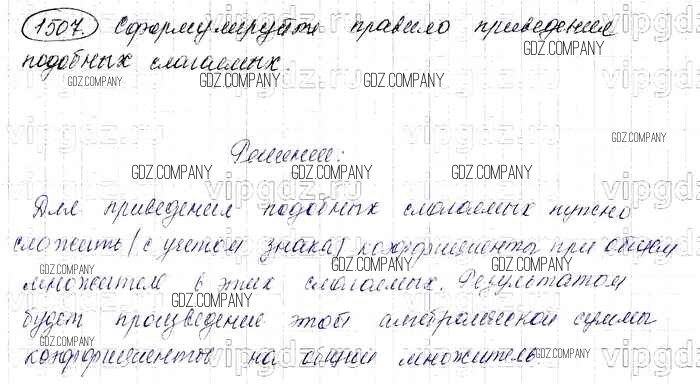 1507. Сформулируйте правило приведения
подобных слагаемых.
Решение:
Для приведения подобных слагаемых нужно
сложить (с учетом знака) коэффициенты при общем
множителе в этих слагаемых. Результатом
будет произведение этой алгебраической суммы
коэффициентов на общий множитель.